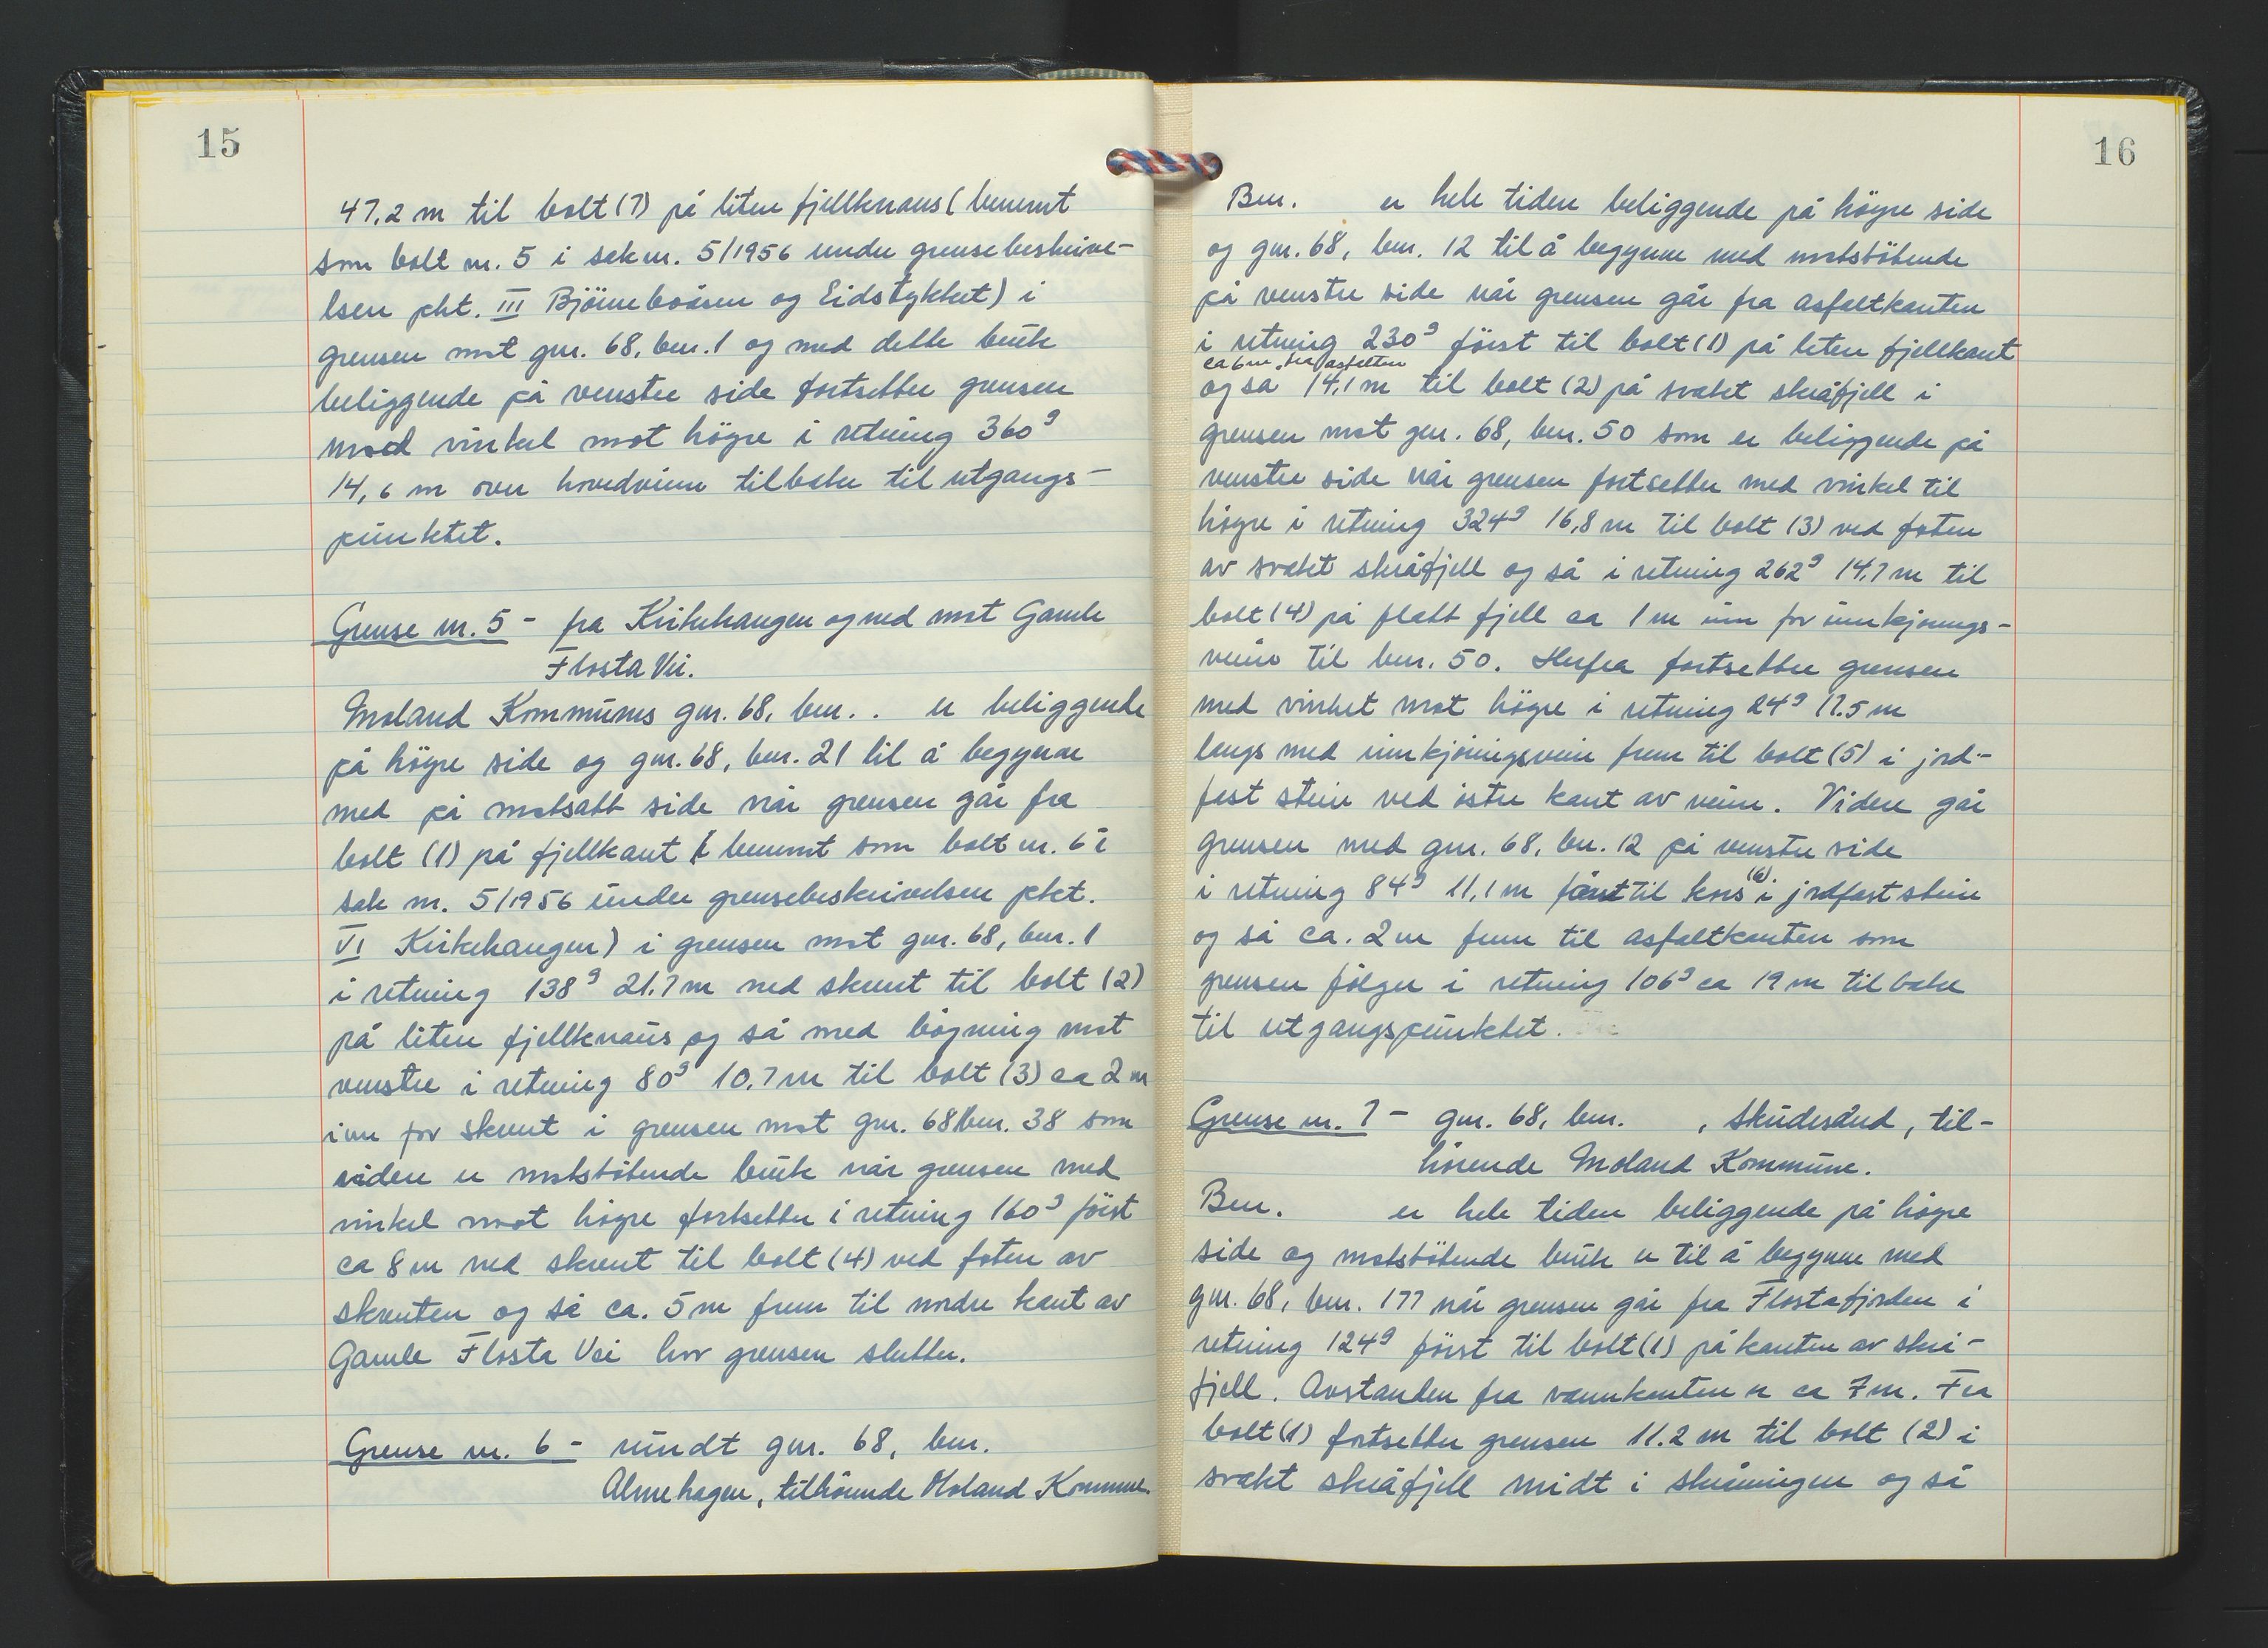 15
47,2 m til bolt (7) på liten fjellknaus (benevnt
som bolt nr. 5 i sak nr. 5/1956 under grensebeskrive-
lsen pkt. III Bjönneboåsen og Eidstykket) i
grensen mot gnr. 68, bnr. 1 og med dette bruk
beliggende på venstre side fortsetter grensen
med vinkel mot högre i retning 360g
14,6 m over hovedveien tilbake til utgangs-
punktet.
Grense nr. 5 - fra Kirkehaugen og ned mot Gamle
Flosta Vei.
Moland Kommunes gnr. 68, bnr. . er beliggende
på högre side og gnr. 68, bnr. 21 til å begynne
med på motsatt side når grensen går fra
bolt (1) på fjellkant (benevnt som bolt nr. 6 i
sak nr. 5/1956 under grensebeskrivelsen pkt.
VI Kirkehaugen) i grensen mot gnr. 68, bnr. 1
i retning 138g 21.7 m ned skrent til bolt (2)
på liten fjellknaus og så med bögning mot
venstre i retning 80g 10.7 m til bolt (3) ca 2 m
inn for skrent i grensen mot gnr. 68 bnr. 38 som
videre er motstötende bruk når grensen med
vinkel mot högre fortsetter i retning 160g först
ca 8 m ned skrent til bolt (4) ved foten av
skrenten og så ca. 5 m frem til nordre kant av
Gamle Flosta Vei hvor grensen slutter.
Grense nr. 6 - rundt gnr. 68, bnr.
Almehagen, tilhörende Moland Kommune.
16
Bnr. er hele tiden beliggende på högre side
og gnr. 68, bnr. 12 til å begynne med motstötende
på venstre side når grensen går fra asfaltkanten
i retning 230g först til bolt (1) på liten fjellkant
ca 6 m. fra asfalten
og så 14,1 m til bolt (2) på svakt skråfjell i
grensen mot gnr. 68, bnr. 50 som er beliggende på
venstre side når grensen fortsetter med vinkel til
högre i retning 324g 16,8 m til bolt (3) ved foten
av svakt skråfjell og så i retning 262g 14.7 m til
bolt (4) på flatt fjell ca 1 m inn for innkjörings-
veien til bnr. 50. Herfra fortsetter grensen
med vinkel mot högre i retning 24g 17.5 m
langs med innkjöringsveien frem til bolt (5) i jord-
fast stein ved östre kant av veien. Videre går
grensen med gnr. 68, bnr. 12 på venstre side
i retning 84g 11,1 m först til kors (6) i jordfast stein
og så ca. 2 m frem til asfaltkanten som
grensen fölger i retning 106g ca 19 m tilbake
til utgangspunktet.
Grense nr. 7 - gnr. 68, bnr. , Skudesund, til-
hörende Moland Kommune.
Bnr. er hele tiden beliggende på högre
side og motstötende bruk er til å begynne med
gnr. 68, bnr. 177 når grensen går fra Flostafjorden i
retning 124g först til bolt (1) på kanten av skrå-
fjell. Avstanden fra vannkanten er ca 7 m. Fra
bolt (1) fortsetter grensen 11.2 m til bolt (2) i
svakt skråfjell midt i skråningen og så